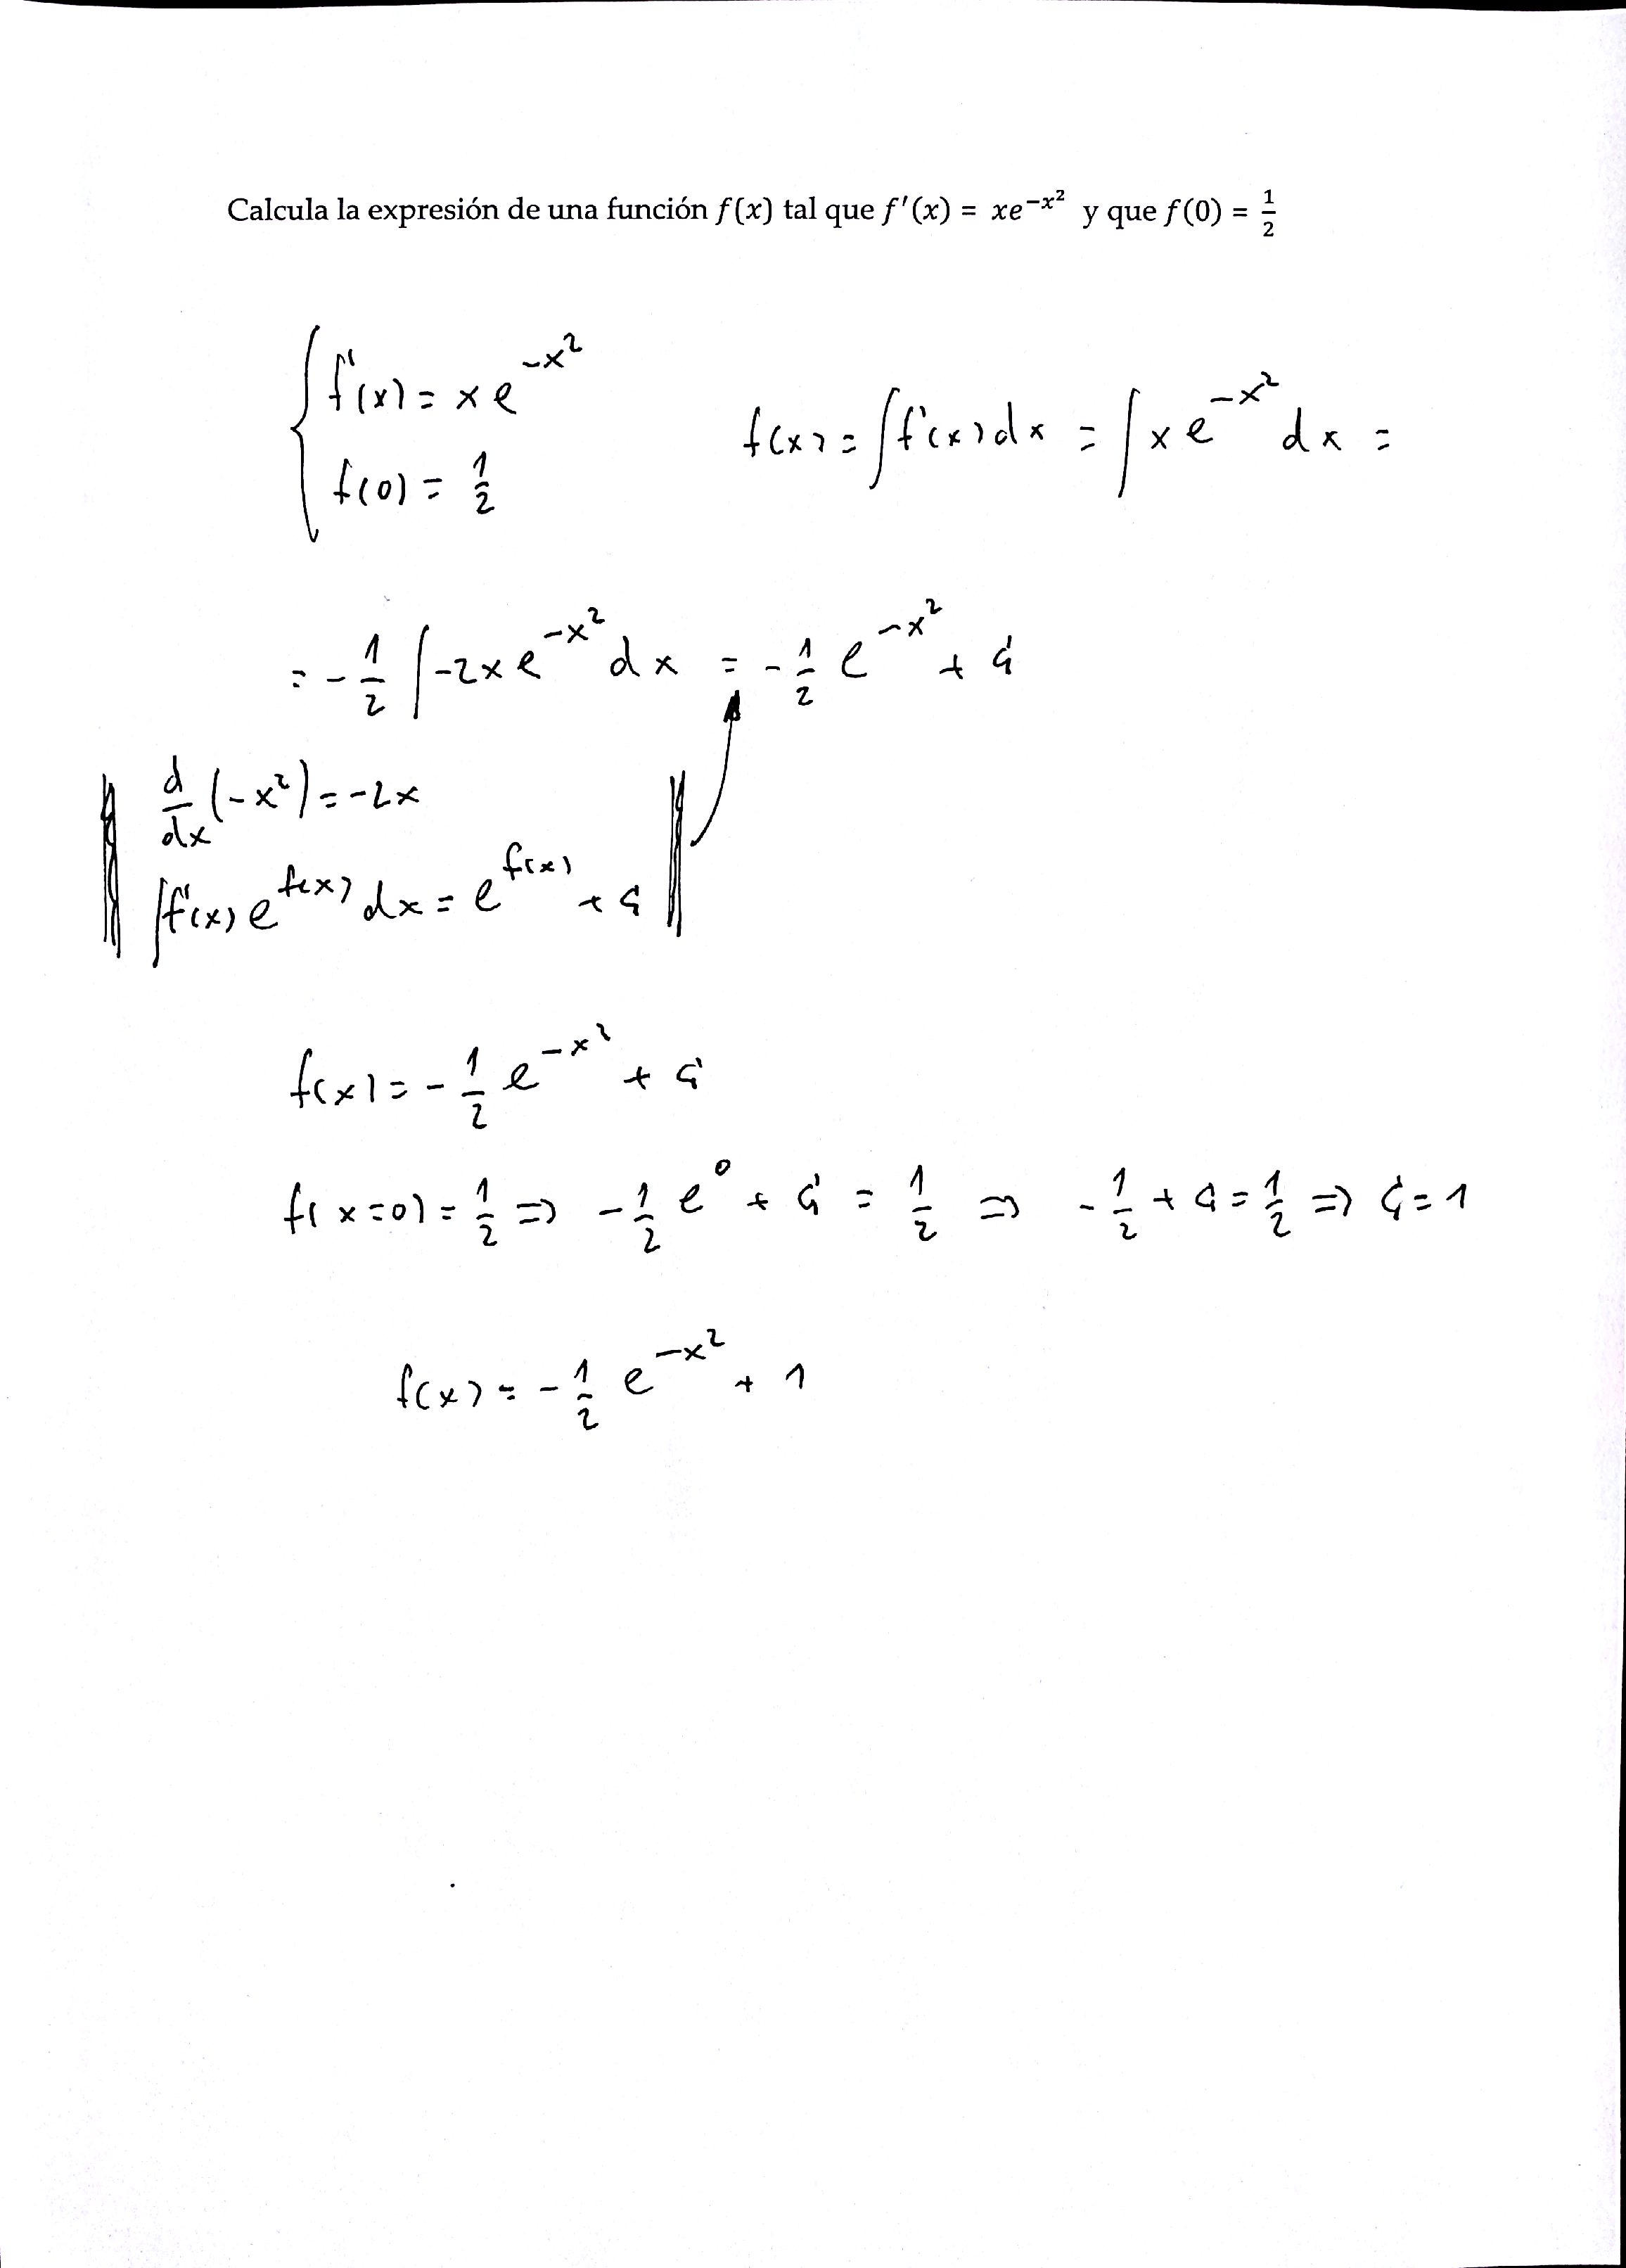 Calcula la expresión de una función f(x) tal que f'(x) = xe^{-x^2} y que f(0) = 1/2
{ f'(x) = x e^{-x^2}
f(0) = 1/2
f(x) = ∫f'(x)dx = ∫x e^{-x^2} dx =
= -1/2 ∫-2x e^{-x^2} dx = -1/2 e^{-x^2} + C
d/dx (-x^2) = -2x
∫f'(x) e^{f(x)} dx = e^{f(x)} + C
f(x) = -1/2 e^{-x^2} + C
f(x=0) = 1/2 ⇒ -1/2 e^0 + C = 1/2 ⇒ -1/2 + C = 1/2 ⇒ C = 1
f(x) = -1/2 e^{-x^2} + 1